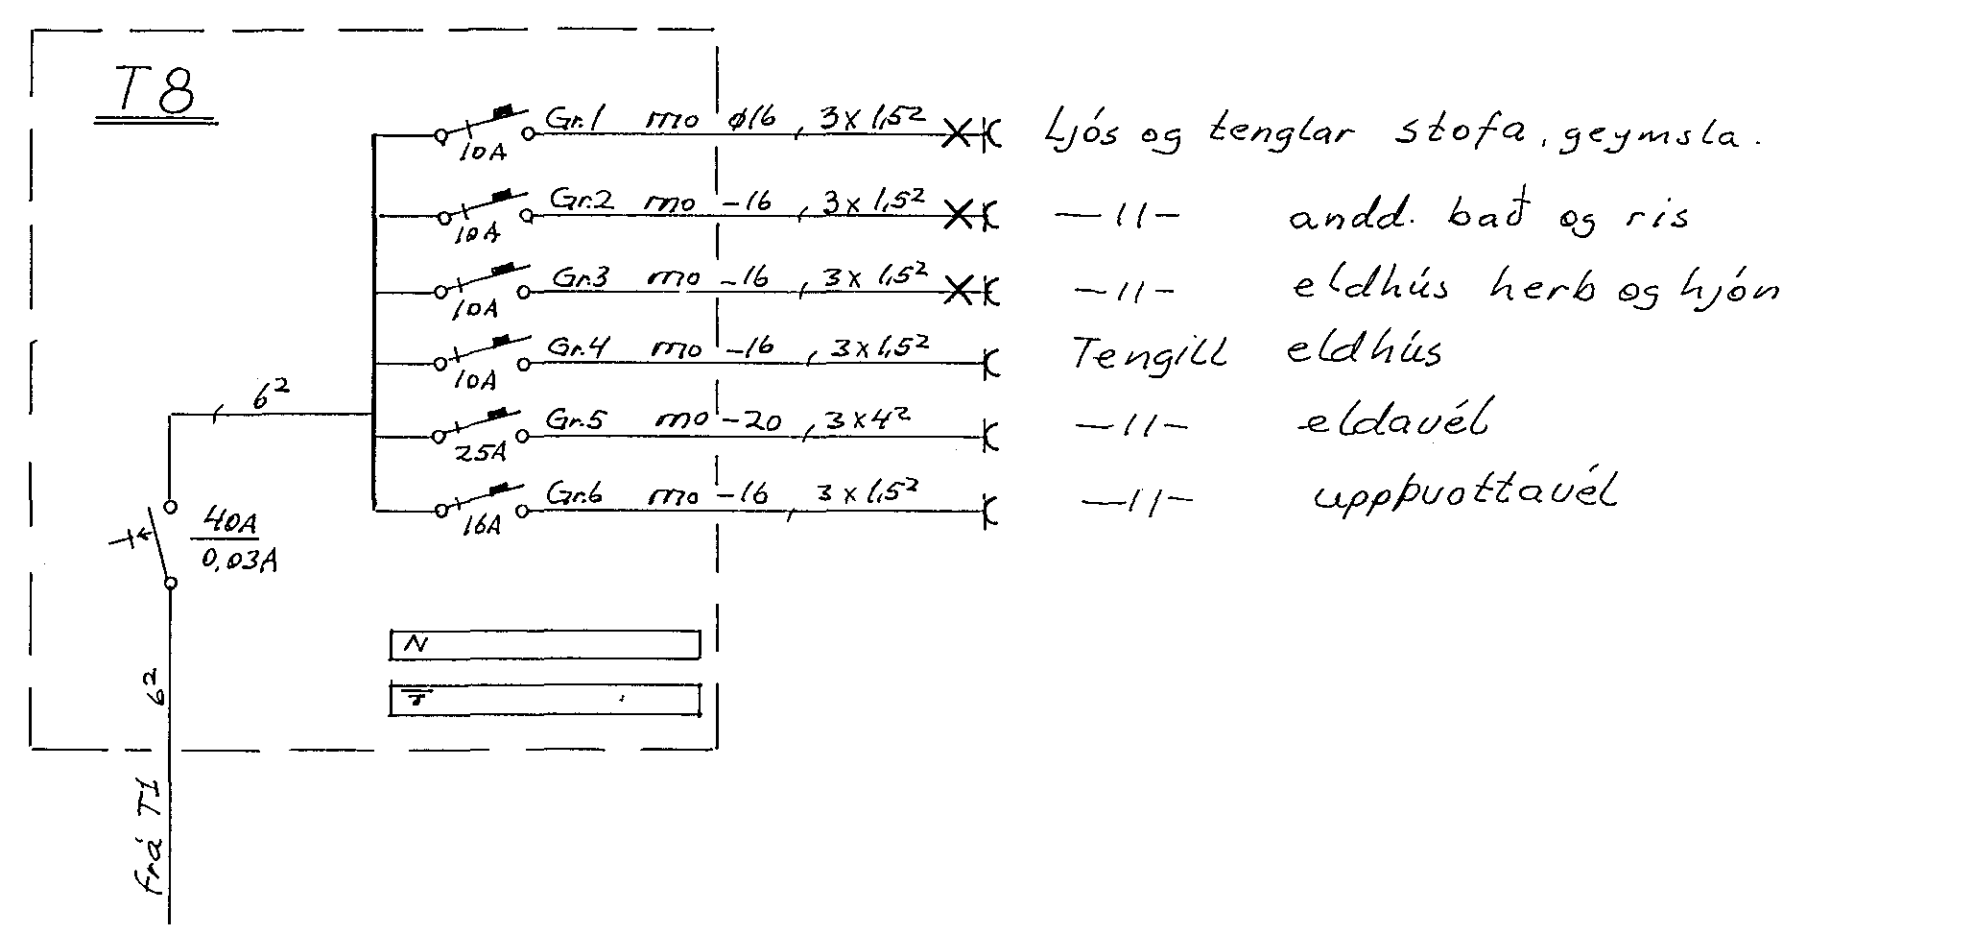 T8
Gr.1 mo ø16, 3x1,5² Ljós og tenglar stofa, geymsla.
10A
Gr.2 mo -16, 3x1,5² —11— andd. bað og ris
10A
Gr.3 mo -16, 3x1,5² —11— eldhús herb og hjón
10A
Gr.4 mo -16, 3x1,5² Tengill eldhús
10A
6²
Gr.5 mo -20, 3x4² —11— eldavél
25A
Gr.6 mo -16 3x1,5² —11— uppþvottavél
16A
40A
0,03A
N
6²
frá T1